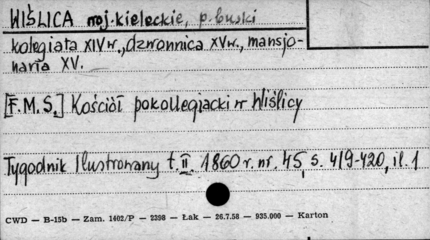 WIŚLICA woj. kieleckie, p. buski
kolegiata XIV w., dzwonnica XV w., mansjo-
naria XV.
[F.M.S.] Kościół pokollegiacki w Wiślicy
Tygodnik Ilustrowany t. II 1860 r. nr. 45, s. 419-420, il. 1
CWD — B-15b — Zam. 1402/P — 2398 — Łak — 26.7.58 — 935.000 — Karton